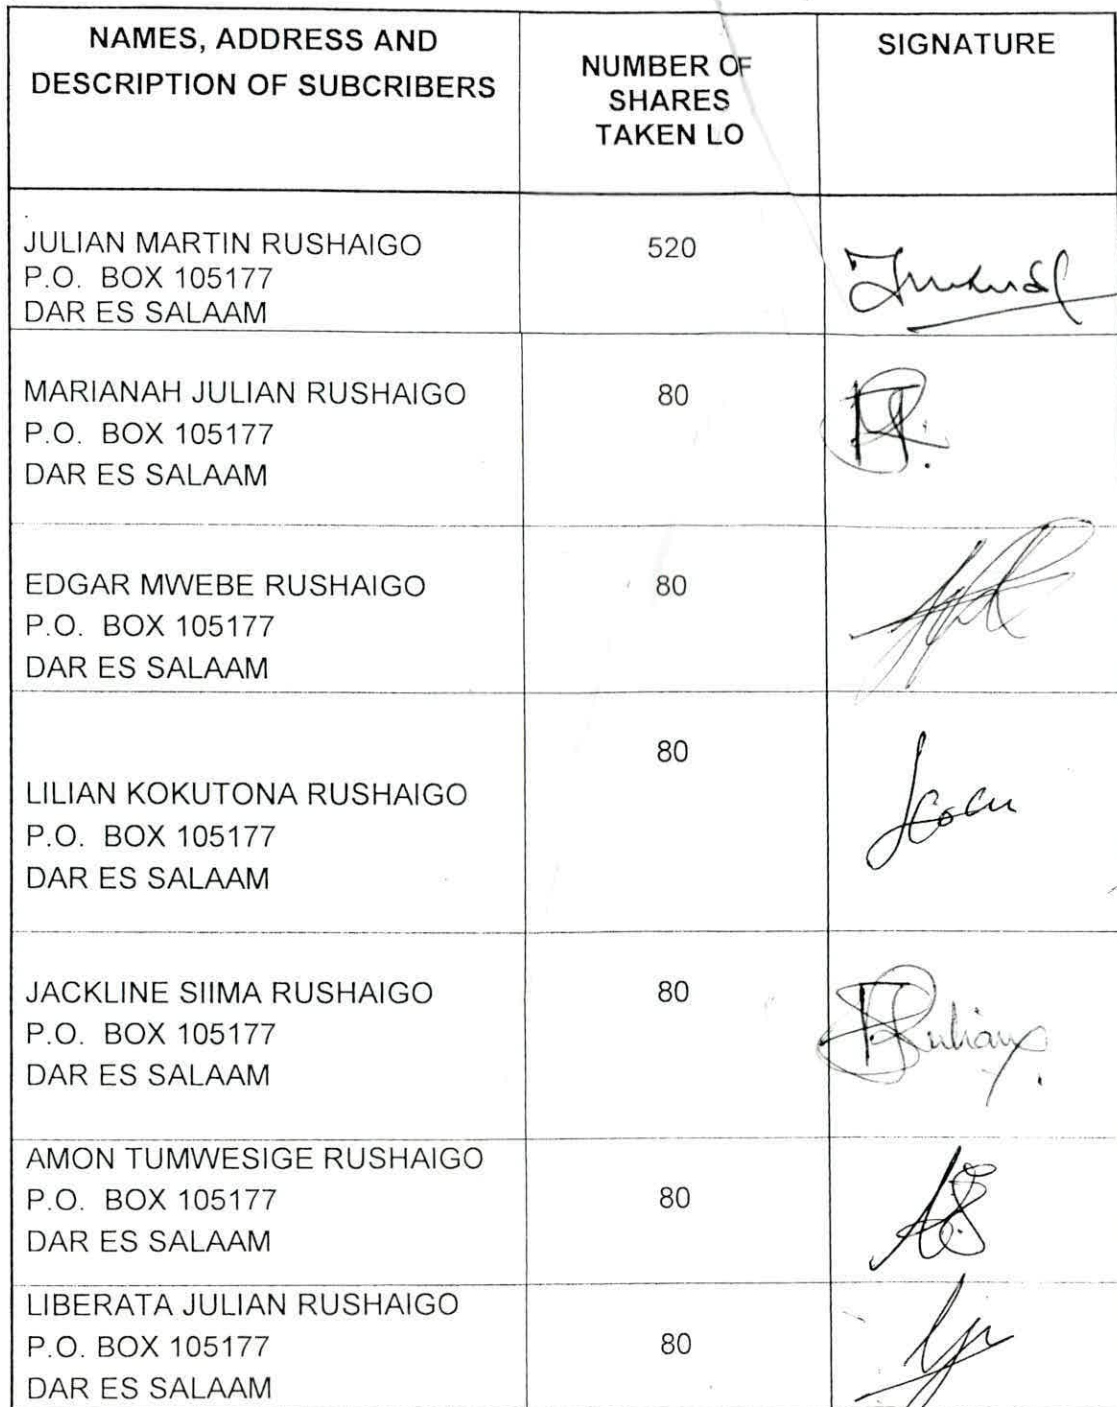 NAMES, ADDRESS AND
DESCRIPTION OF SUBCRIBERS
NUMBER OF
SHARES
TAKEN LO
SIGNATURE
JULIAN MARTIN RUSHAIGO
P.O. BOX 105177
DAR ES SALAAM
520
MARIANAH JULIAN RUSHAIGO
P.O. BOX 105177
DAR ES SALAAM
80
EDGAR MWEBE RUSHAIGO
P.O. BOX 105177
DAR ES SALAAM
80
LILIAN KOKUTONA RUSHAIGO
P.O. BOX 105177
DAR ES SALAAM
80
JACKLINE SIIMA RUSHAIGO
P.O. BOX 105177
DAR ES SALAAM
80
AMON TUMWESIGE RUSHAIGO
P.O. BOX 105177
DAR ES SALAAM
80
LIBERATA JULIAN RUSHAIGO
P.O. BOX 105177
DAR ES SALAAM
80